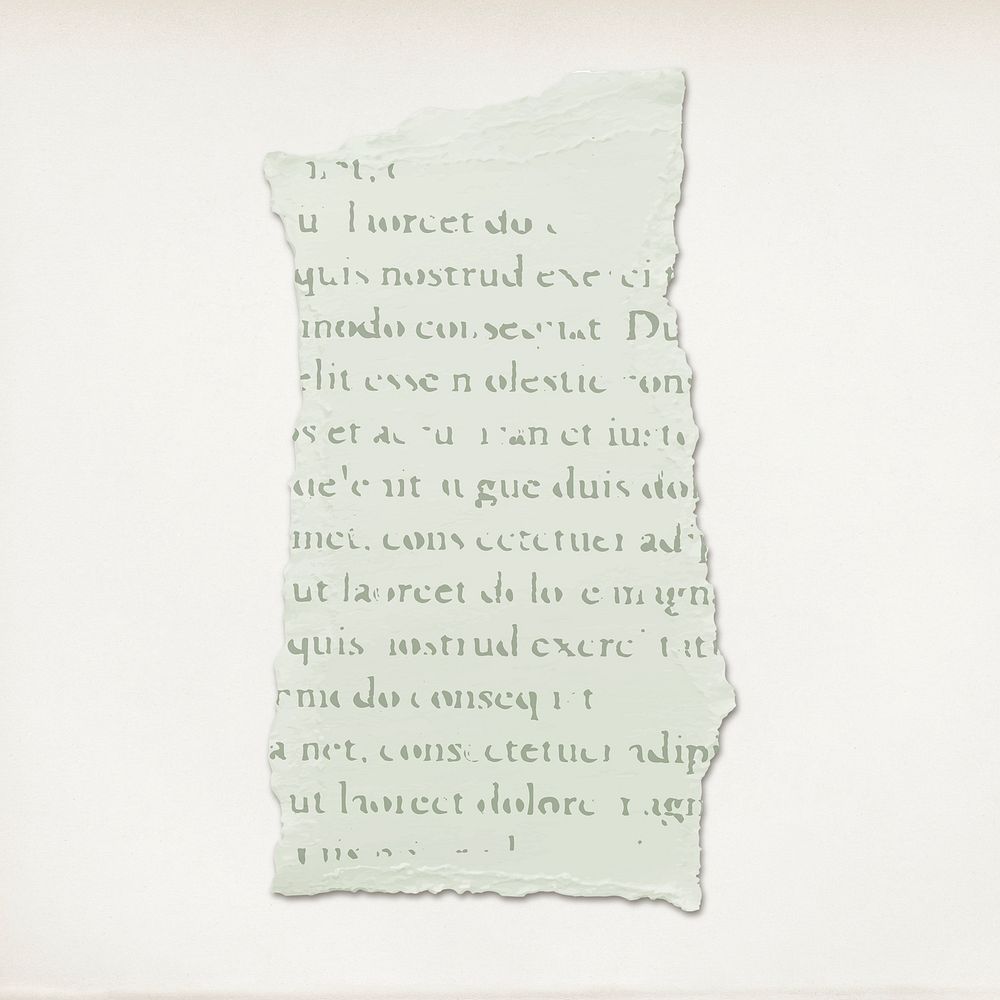 laoreet do
quis nostrud exerci
modo consequat Du
elit esse molestie con
os et accumsan et iusto
augue duis dol
met, consectetuer adip
ut laoreet dolore magn
quis nostrud exerci tati
mmodo consequat
amet, consectetuer adip
ut laoreet dolore magn